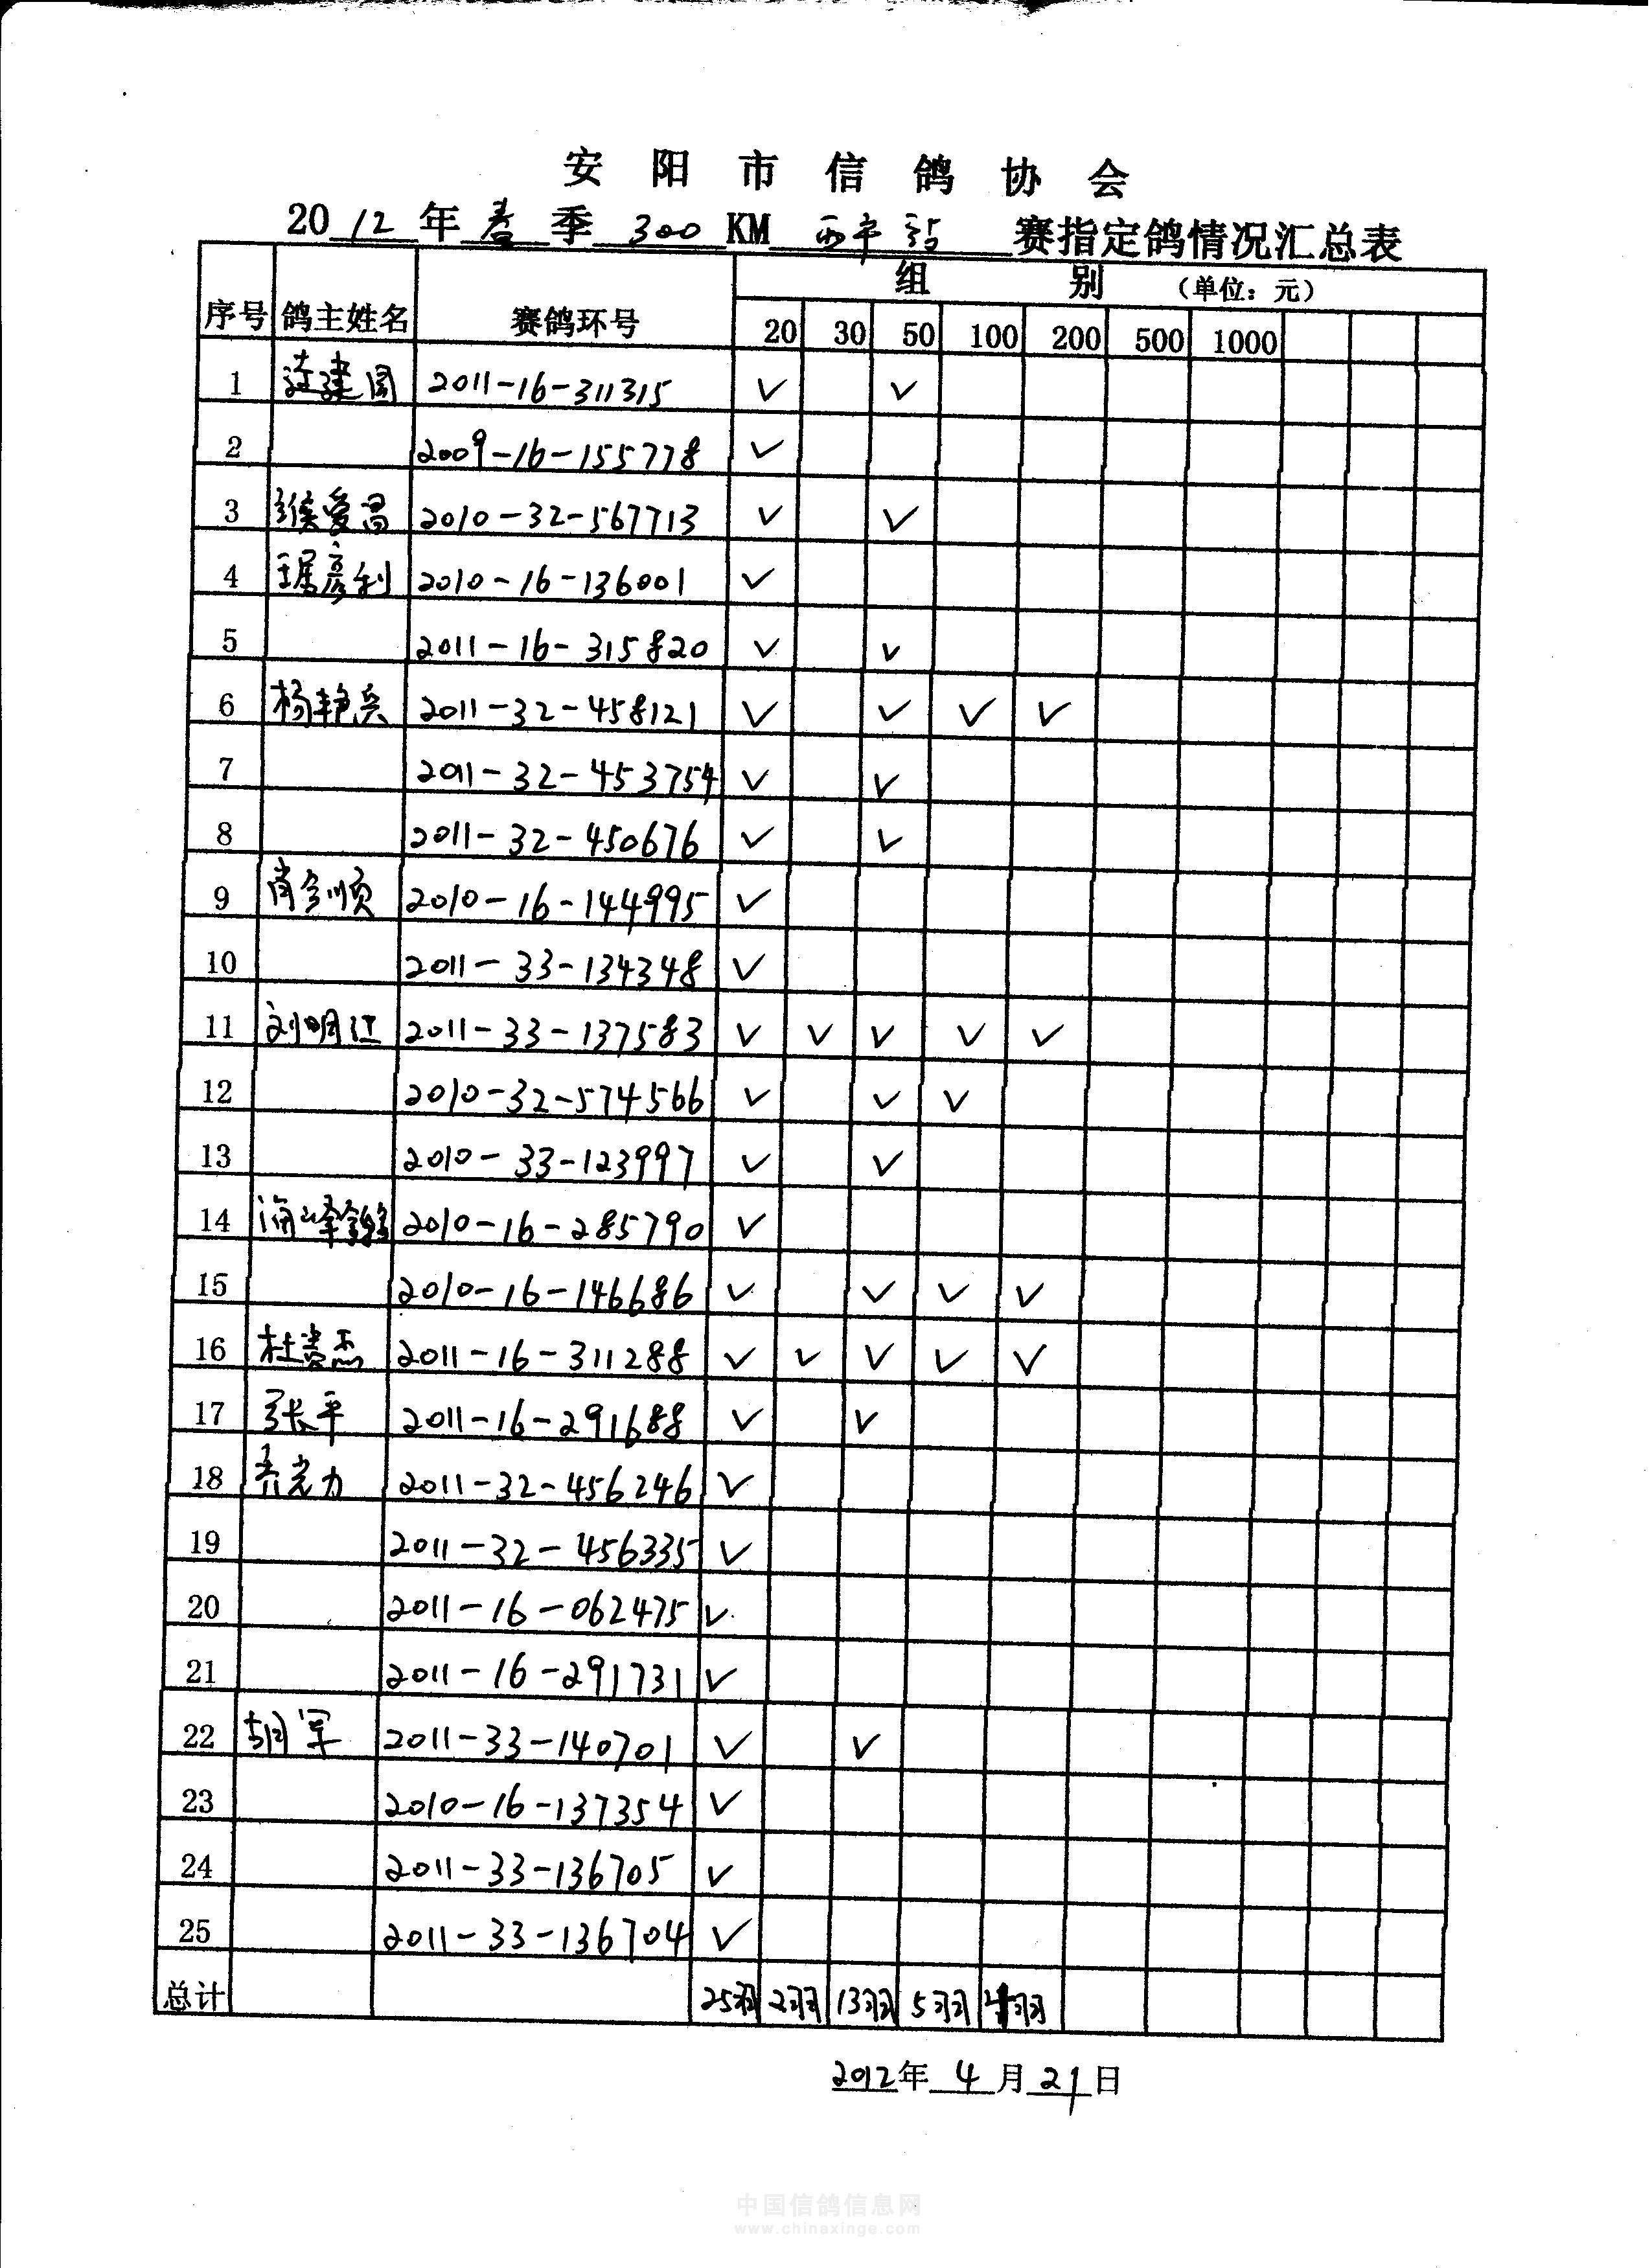 安阳市信鸽协会
2012年春季300KM西平站赛指定鸽情况汇总表
序号 鸽主姓名 赛鸽环号 组别（单位：元）
20 30 50 100 200 500 1000
1 建国 2011-16-311315 ✓ ✓
2 2009-16-155778 ✓
3 侯爱昌 2010-32-567713 ✓ ✓
4 琚彦利 2010-16-136001 ✓
5 2011-16-315820 ✓ ✓
6 杨艳兵 2011-32-458121 ✓ ✓ ✓ ✓
7 2011-32-453754 ✓ ✓
8 2011-32-450676 ✓ ✓
9 顺 2010-16-144995 ✓
10 2011-33-134348 ✓
11 刘明江 2011-33-137583 ✓ ✓ ✓ ✓ ✓
12 2010-32-574566 ✓ ✓ ✓
13 2010-33-123997 ✓ ✓
14 2010-16-285790 ✓
15 2010-16-146686 ✓ ✓ ✓ ✓
16 杜贵杰 2011-16-311288 ✓ ✓ ✓ ✓ ✓
17 张平 2011-16-291688 ✓ ✓
18 力 2011-32-456246 ✓
19 2011-32-456335 ✓
20 2011-16-062475 ✓
21 2011-16-291731 ✓
22 胡军 2011-33-140701 ✓ ✓
23 2010-16-137354 ✓
24 2011-33-136705 ✓
25 2011-33-136704 ✓
总计 25羽 2羽 13羽 5羽 4羽
2012年4月21日
中国信鸽信息网
www.chinaxinge.com